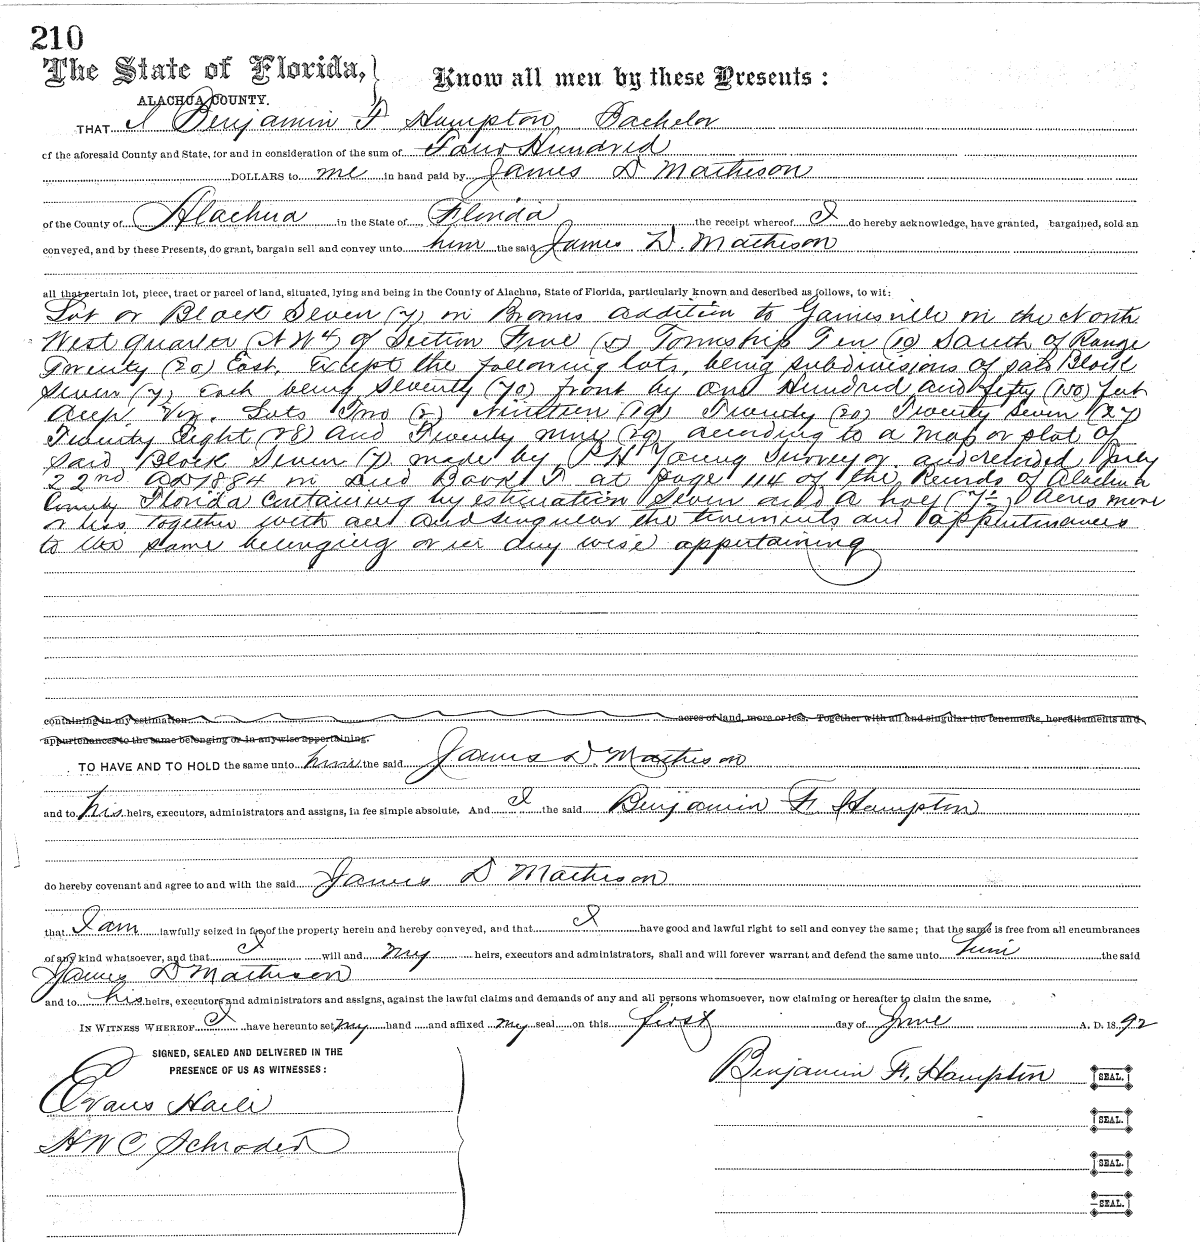 210
The State of Florida,
Know all men by these Presents:
ALACHUA COUNTY.
THAT I Benjamin F Hampton Bachelor
of the aforesaid County and State, for and in consideration of the sum of Four Hundred
DOLLARS to me in hand paid by James D Matheson
of the County of Alachua in the State of Florida the receipt whereof I do hereby acknowledge, have granted, bargained, sold an
conveyed, and by these Presents, do grant, bargain sell and convey unto him the said James D. Matheson
all that certain lot, piece, tract or parcel of land, situated, lying and being in the County of Alachua, State of Florida, particularly known and described as follows, to wit:
Lot or Block Seven (7) in Browns addition to Gainesville in the North
West quarter (N W 4) of Section Five (5) Township Ten (10) South of Range
Twenty (20) East, Except the following lots, being subdivisions of said Block
Seven (7) Each being Seventy (70) front by One Hundred and fifty (150) feet
deep Viz. Lots Two (2) Nineteen (19) Twenty (20) Twenty Seven (27)
Twenty Eight (28) and Twenty nine (29) according to a map or plat of
said Block Seven (7) made by P H Young Surveyor and recorded July
22nd AD 1884 in Deed Book T at page 114 of the Records of Alachua
County Florida Containing by estimation Seven and a half (7½) Acres more
or less Together with all and singular the tenements and appurtenances
to the same belonging or in any wise appertaining
containing in my estimation acres of land, more or less. Together with all and singular the tenements, hereditaments and
appurtenances to the same belonging or in anywise appertaining.
TO HAVE AND TO HOLD the same unto him the said James D. Matheson
and to his heirs, executors, administrators and assigns, in fee simple absolute. And I the said Benjamin F. Hampton
do hereby covenant and agree to and with the said James D Matheson
that I am lawfully seized in fee of the property herein and hereby conveyed, and that I have good and lawful right to sell and convey the same; that the same is free from all encumbrances
of any kind whatsoever, and that I will and my heirs, executors and administrators, shall and will forever warrant and defend the same unto him the said
James D Matheson
and to his heirs, executors and administrators and assigns, against the lawful claims and demands of any and all persons whomsoever, now claiming or hereafter to claim the same.
IN WITNESS WHEREOF I have hereunto set my hand and affixed my seal on this first day of June A. D. 1892
SIGNED, SEALED AND DELIVERED IN THE
PRESENCE OF US AS WITNESSES:
Benjamin F. Hampton SEAL.
Evans Haile
SEAL.
HWC Schroder
SEAL.
SEAL.